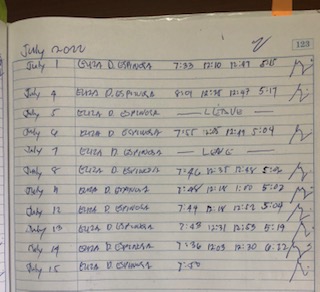 July 2022
123
July 1 ELIZA D. ESPINOSA 7:33 12:10 12:47 5:15
July 4 ELIZA D. ESPINOSA 8:01 12:35 12:47 5:17
July 5 ELIZA D. ESPINOSA — LEAVE —
July 6 ELIZA D. ESPINOSA 7:55 5:04
July 7 ELIZA D. ESPINOSA — LEAVE —
July 8 ELIZA D. ESPINOSA 7:46 12:35 12:48 5:02
July 11 ELIZA D. ESPINOSA 7:48 12:18 1:00 5:02
July 12 ELIZA D. ESPINOSA 7:49 12:18 12:52 5:04
July 13 ELIZA D. ESPINOSA 7:43 12:31 12:53 5:19
July 14 ELIZA D. ESPINOSA 7:36 12:03 12:30
July 15 ELIZA D. ESPINOSA 7:50